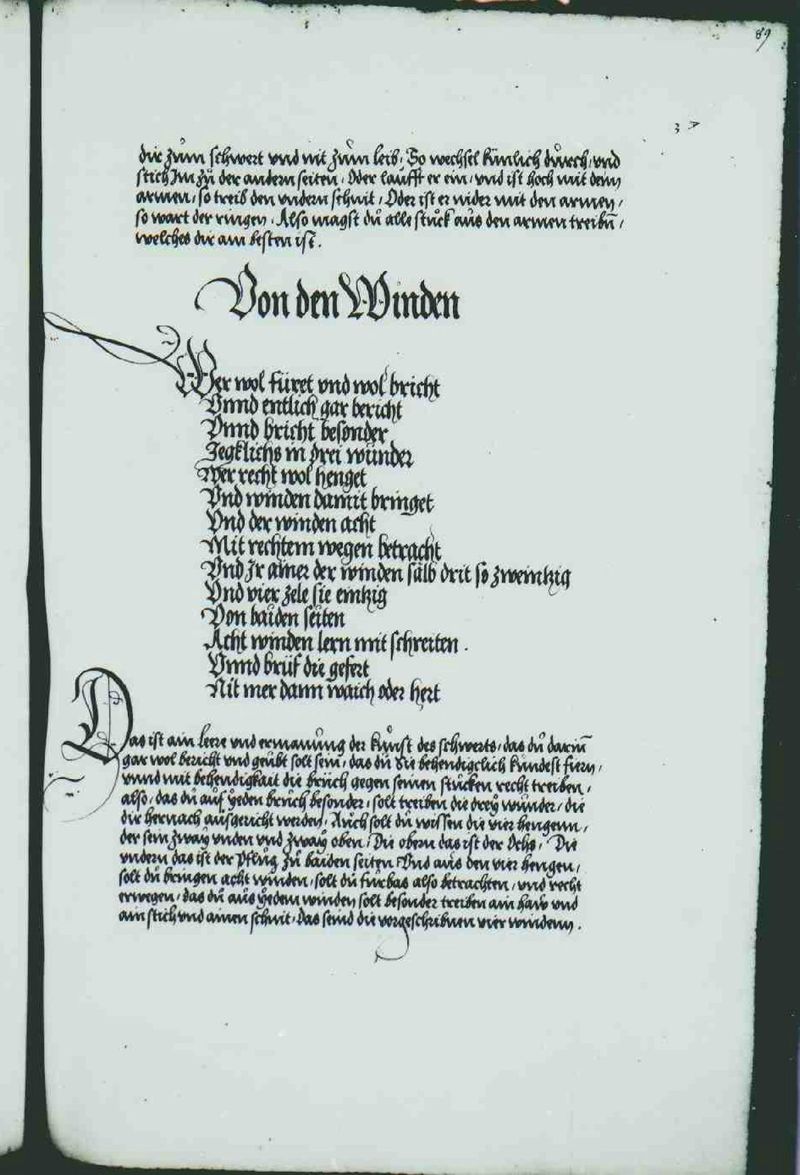 89
dir zům schwert vnd nit zům leib / So wechsel künlich důrch / vnd
stich Im zů der andern seiten / Oder laufft er ein / vnd ist hoch mit denn
armen / so treib den vndern schnit / Oder ist er nider mit den armen /
so wart der ringen / Also magst dů alle stůck aůs den armen treibñ /
welches dir am besten ist .
Von den Winden
Wer wol füret vnd wol bricht
Vnnd entlich gar bericht
Vnnd bricht besonder
Jegklichs in drei wünder
Wer recht wol henget
Vnd winden damit bringet
Vnd der winden acht
Mit rechtem wegen betracht
Vnd jr ainer der winden sälb drit so zweintzig
Vnd vier zele sie eintzig
Von baiden seiten
Acht winden lern mit schreiten .
Vnnd brüf die gefert
Nit mer dann waich oder hert
Das ist ain leere vnd ermanůng der kůnst des schwerts / das dů darin̄
gar wol bericht vnd geübt solt sein / das dů Sie behendigclich kündest fiern /
vnnd mit behendigkait die brüch gegen seinen stůcken recht treiben /
also / das dů aůf yeden brůch besonder / solt treiben die drey wůnder / die
dir hernach aůsgericht werden / Aůch solt dů wissen die vier hengenn /
der sein zwaÿ vnden vnd zwaÿ oben / Die obern das ist der Ochs / Die
vndern das ist der pflůg zů baiden seiten Vnd aůs den vier hengen /
solt dů bringen acht winden / solt dů fürbas also betrachten / vnd recht
erwegen / das dů aůs yedem winden solt besonder treiben ain haw vnd
ain stich vnd ainen schnit / das seind die vorgeschribnen vier winden .